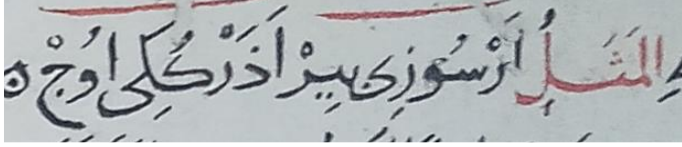 المَثَلُ اَرْسُوزِى بِيرْ اَذَرْ كُكِى اوُجْ